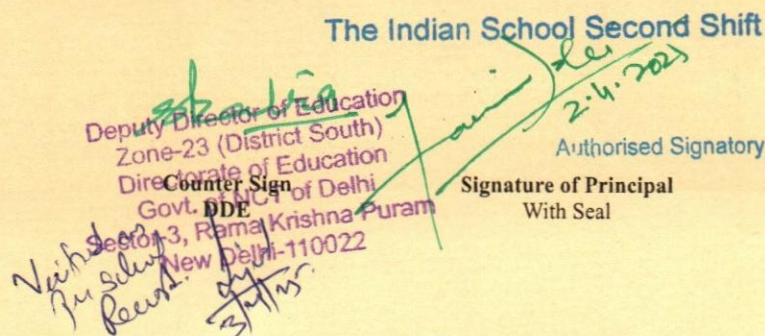 The Indian School Second Shift
2.4.2025
Authorised Signatory
Deputy Director of Education
Zone-23 (District South)
Directorate of Education
Govt. of NCT of Delhi
Sector-3, Rama Krishna Puram
New Delhi-110022
Counter Sign
DDE
Signature of Principal
With Seal